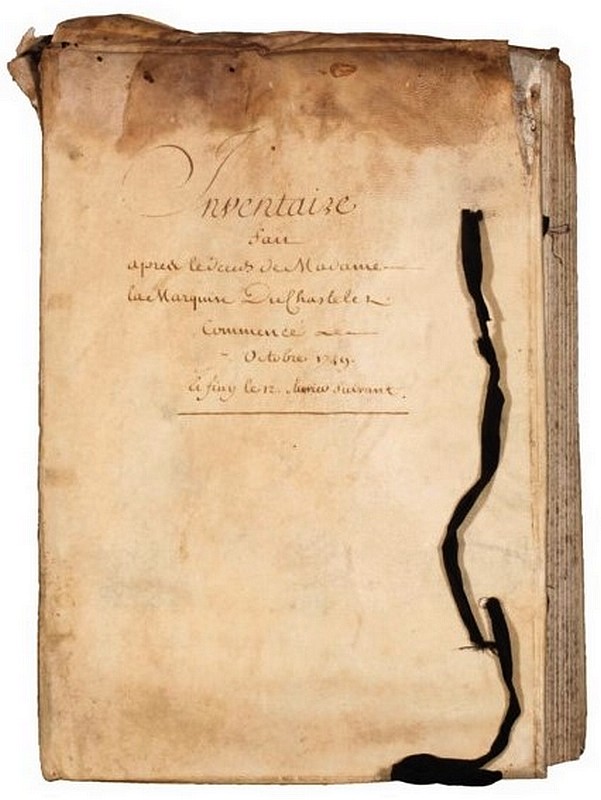 Inventaire
fait
apres le deces de Madame
la Marquise DuChastelet
Commencé le
Octobre 1749.
et finy le 12. suivant.